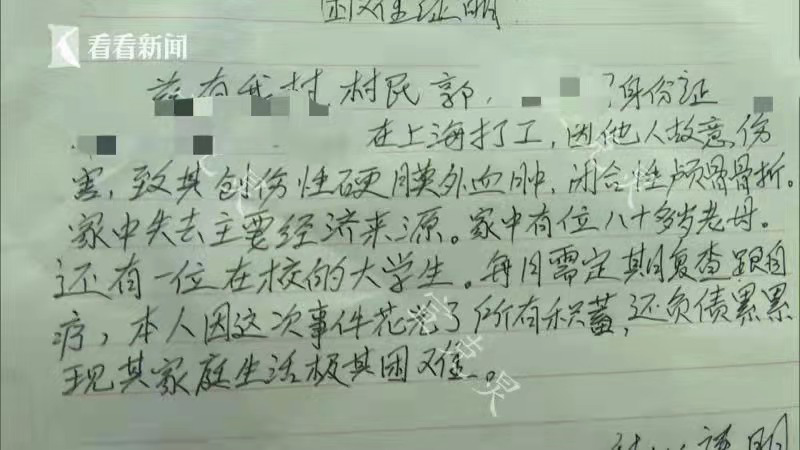 困难证明
看看新闻
兹有我村,村民郭,
身份证
在上海打工,因他人故意伤
害,致其创伤性硬膜外血肿,闭合性颅骨骨折。
家中失去主要经济来源。家中有位八十多岁老母。
还有一位在校的大学生。每月需定期复查跟自
疗,本人因这次事件花光了所有积蓄,还负债累累
现其家庭生活极其困难。
证明